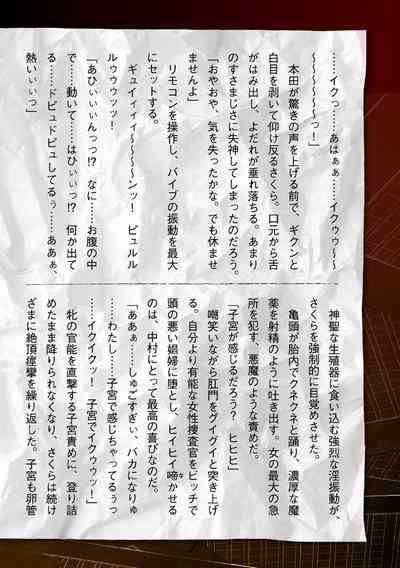 ……イクっ……あはぁぁ……イクゥゥ〜
〜〜〜〜〜〜っ！」
本田が驚きの声を上げる前で、ギクンと
白目を剥いて仰け反るさくら。口元から舌
がはみ出し、よだれが垂れ落ちる。あまり
のすさまじさに失神してしまったのだろう。
「おやおや、気を失ったかな。でも休ませ
ませんよ」
リモコンを操作し、バイブの振動を最大
にセットする。
ギュイィィィ〜〜〜〜ンッ！　ビュルル
ルゥゥウッッ！
「あひぃぃぃんっっ!?　なに……お腹の中
で……動いて……はひぃぃっ!?　何か出て
る……ドビュドビュしてるぅ……ああぁ、
熱いぃぃっ」
神聖な生殖器に食い込む強烈な淫振動が、
さくらを強制的に目覚めさせた。
亀頭が胎内でクネクネと踊り、濃厚な魔
薬を射精のように吐き出す。女の最大の急
所を犯す、悪魔のような責めだ。
「子宮が感じるだろう？　ヒヒヒ」
嘲笑いながら肛門をグイグイと突き上げ
る。自分より有能な女性捜査官をビッチで
頭の悪い娼婦に堕とし、ヒイヒイ啼かせる
のは、中村にとって最高の喜びなのだ。
「ああぁ……しゅごすぎぃ、バカになりゅ
……わたし……子宮で感じちゃってるぅっ
……イクイクッ！　子宮でイクゥゥッ！」
牝の官能を直撃する子宮責めに、登り詰
めたまま降りられなくなり、さくらは続け
ざまに絶頂痙攣を繰り返した。子宮も卵管